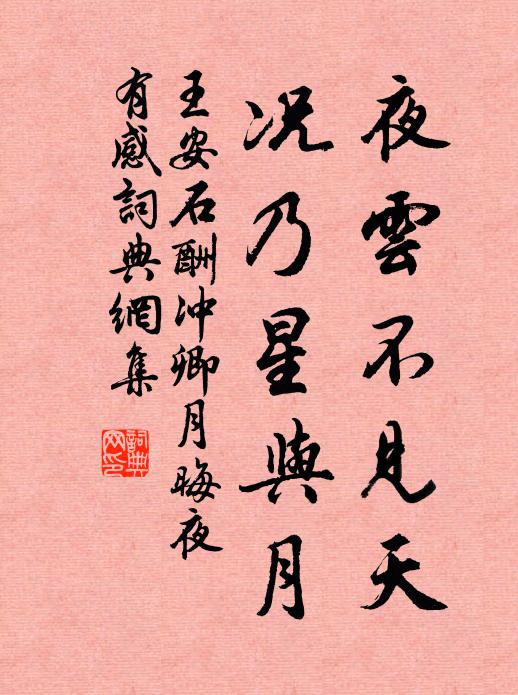 夜雲不見天
况乃星與月
王安石酬冲卿月晦夜
有感詞典網集
詞典
网印